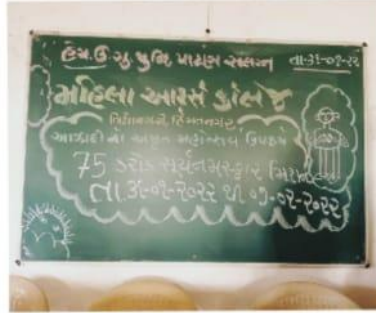 હેમ.ઉ.ગુ.યુનિ પાટણ સંલગ્ન તા.૩૧-૦૧-૨૨
મહિલા આર્ટસ કોલેજ
હિંમતનગર
આઝાદી નો અમૃત મહોત્સવ
75 કરોડ સૂર્યનમસ્કાર
તા.૩૧-૦૧-૨૦૨૨ થી ૦૭-૦૨-૨૦૨૨